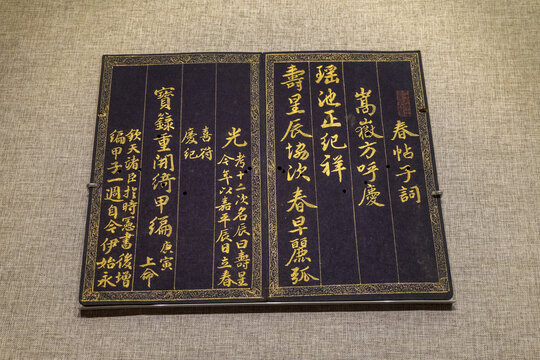 春帖子詞
嵩嶽方呼慶
瑶池正紀祥
壽星辰協次春早麗弧
光考十二次名辰曰壽星
今年以嘉平辰日立春
喜符
慶紀
寶籙重開綺甲編庚寅
上命
欽天諸臣於時憲書後增
編甲子一週自今伊始永